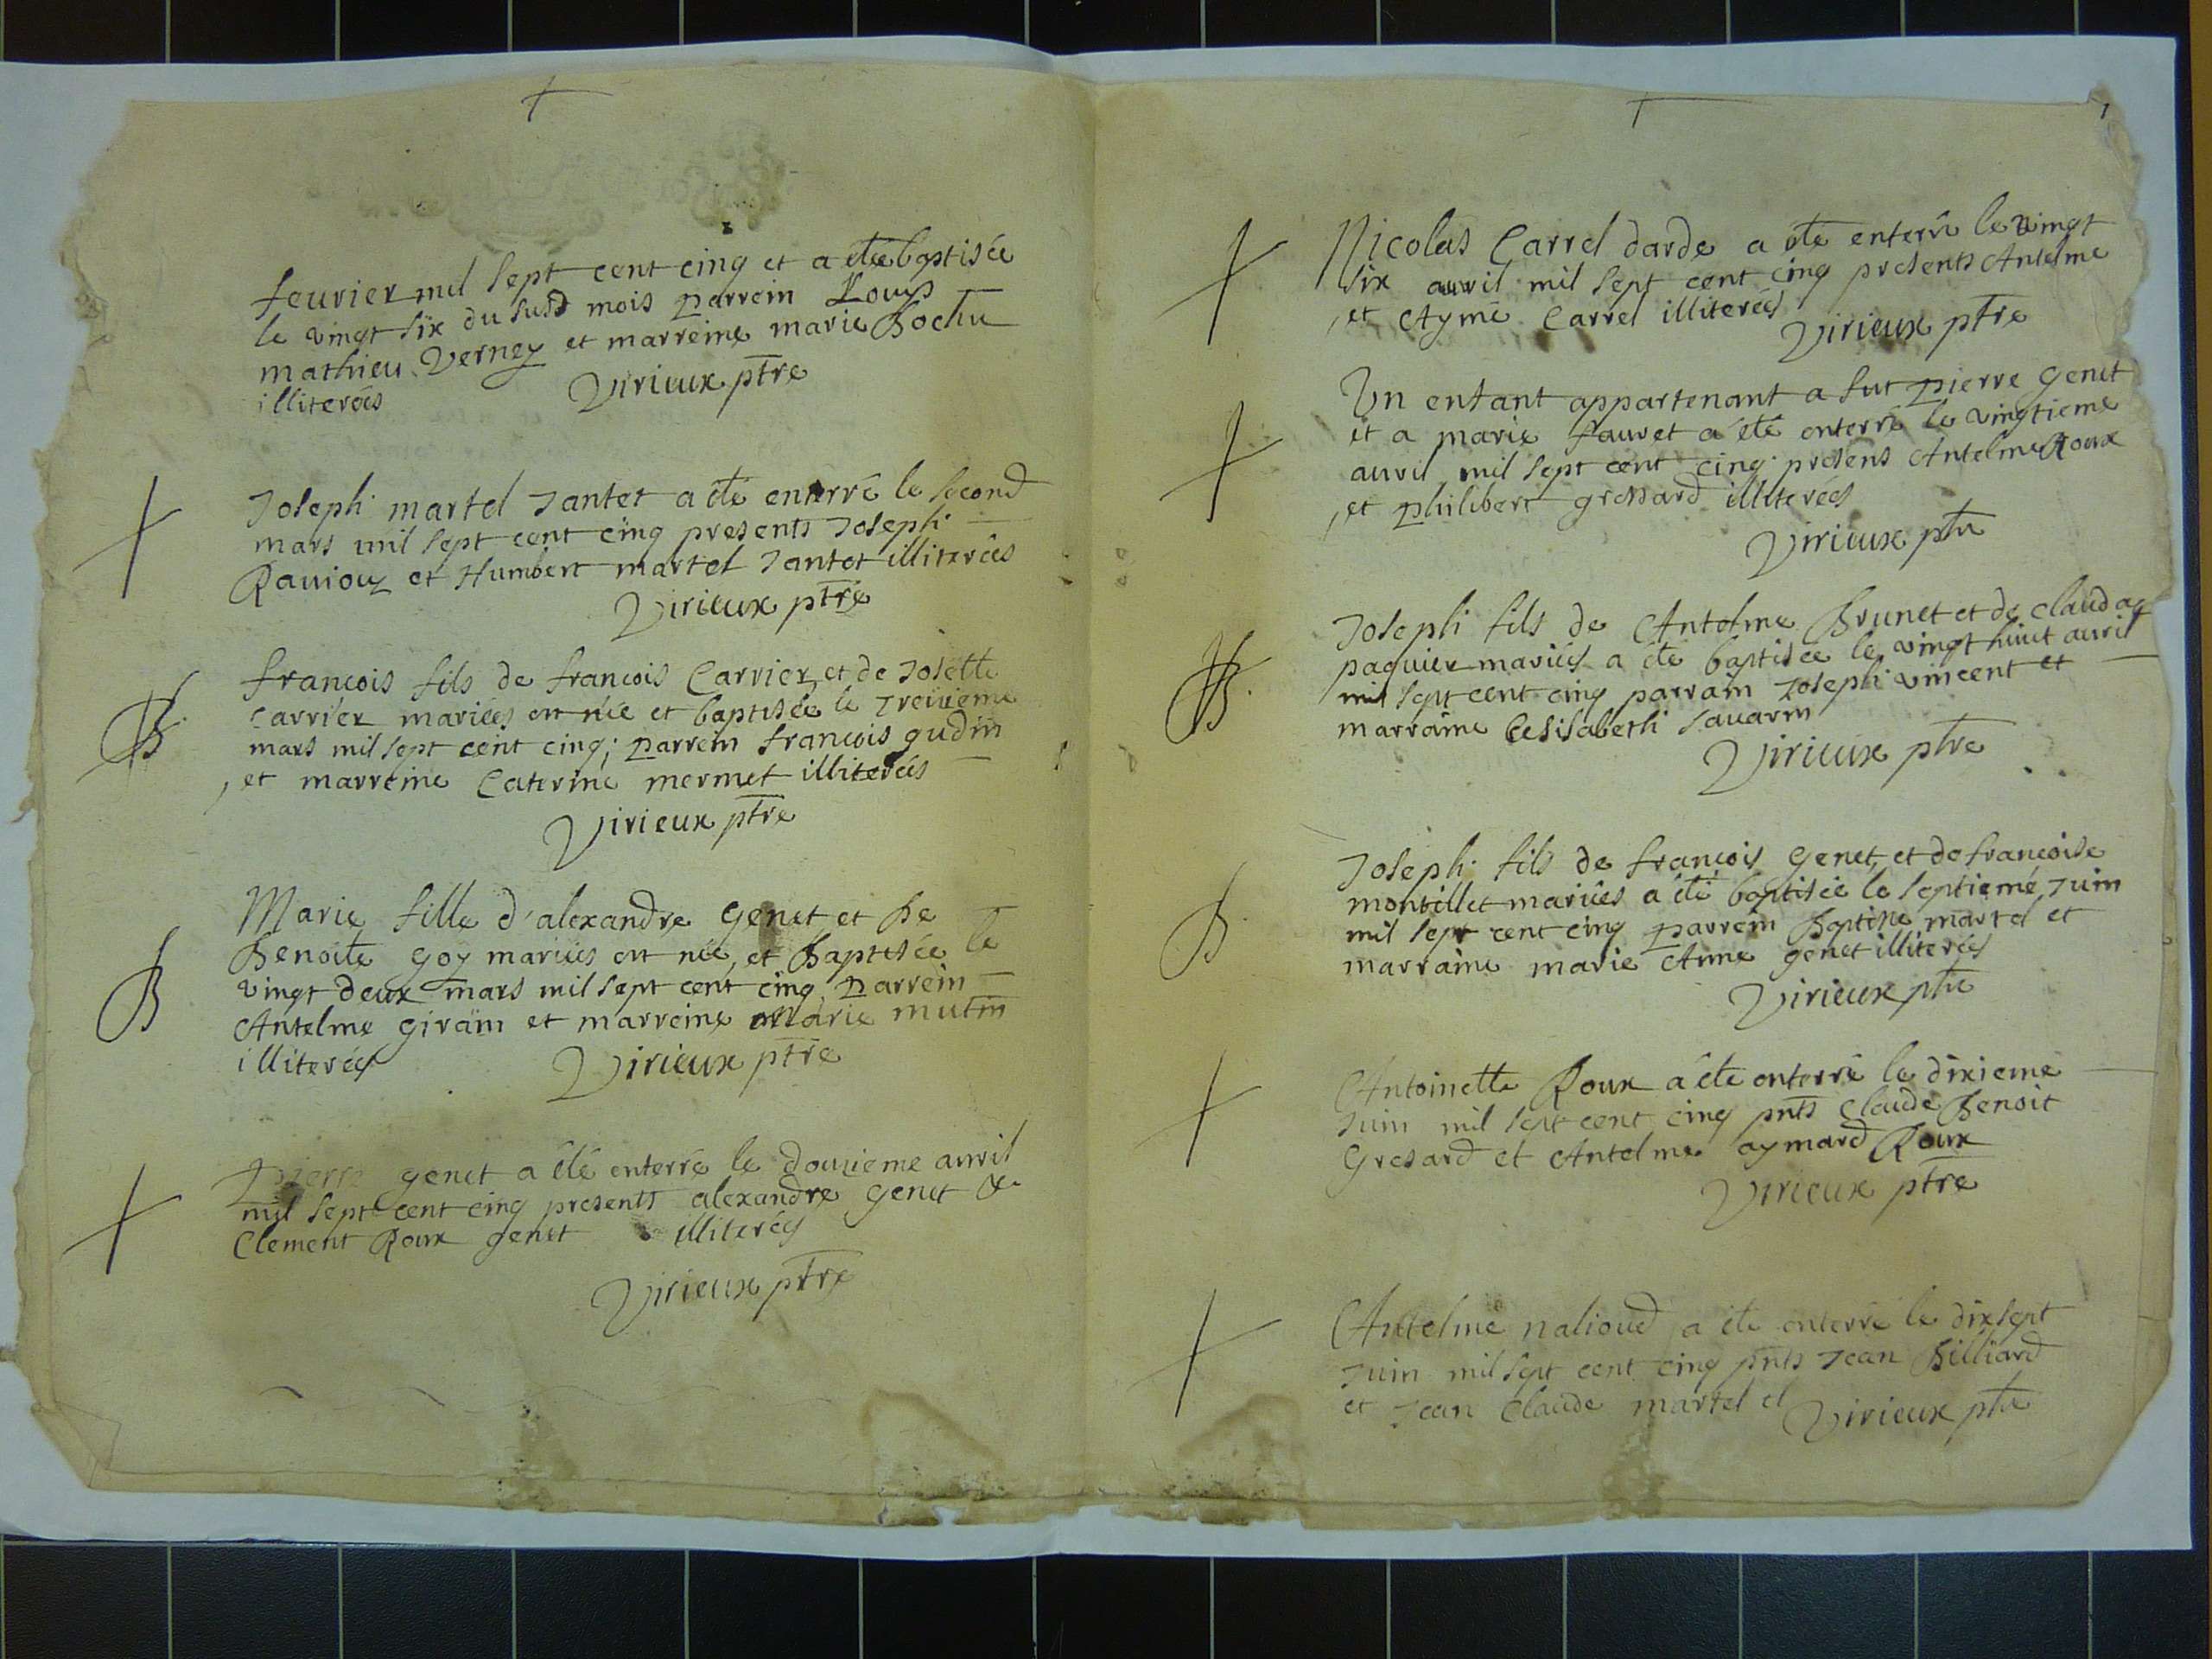 feurier mil sept cent cinq et a eté baptisée
le vingt six du susd mois parrein Louys
mathieu Verney et marreine marie Bochu
illiterées Virieux ptre
Joseph martel Jantet a eté enterré le second
mars mil sept cent cinq presents Joseph
Rauioz et Humbert martel Jantet illiterées
Virieux ptre
B
francois fils de francois Carrier et de Josette
Carrier mariées en née et baptisée le Treiziéme
mars mil sept cent cinq; parrein francois gudin
et marreine Caterine mermet illiterées
Virieux ptre
B
Marie fille d'alexandre Genet et de
Benoite Goy mariées en née, et Baptisée le
vingt deux mars mil sept cent cinq parrein
Antelme giraïn et marreine Marie mutin
illiterées Virieux ptre
Pierre genet a été enterré le douzieme auril
mil sept cent cinq presents alexandre Genet &
Clement Roux genet illiterées
Virieux ptre
Nicolas Carrel darde a eté enterré le vingt
six auvril mil sept cent cinq presents Antelme
et Aymé Carrel illiterées
Virieux ptre
Un enfant appartenant a fut pierre Genet
et a marie fauret a été enterré le vingtieme
auvril mil sept cent cinq presens Antelme Roux
et philibert gressard illiterées
Virieux ptre
B
Joseph fils de Antelme Brunet et de Clauda
paquier mariés a été baptisée le vingt huit auril
mil sept cent cinq parrain Joseph vincent et
marraine Elisabeth Sauarin
Virieux ptre
B
Joseph fils de françois Genet, et de francoise
montillet mariées a été baptisée le septiemé Juin
mil sept cent cinq parrein Baptiste martel et
marraine marie Anne genet illiterées
Virieux ptre
Antoinette Roux a éte enterré le dixieme
Juin mil sept cent cinq pnts Claude Benoit
Gresard et Antelme aymard Roux
Virieux ptre
Antelme nalioud a éte enterré le dixsept
Juin mil sept cent cinq pnts Jean Billiard
et Jean Claude martel Virieux ptre